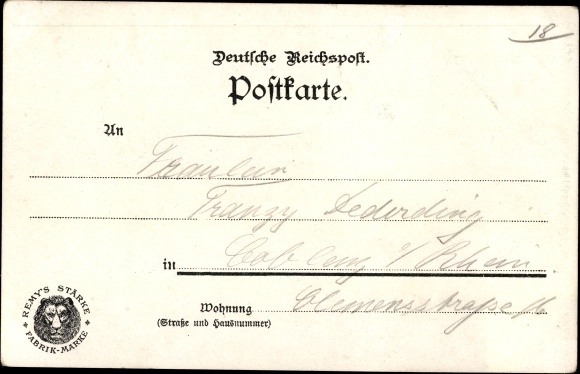 18
Deutsche Reichspost.
Postkarte.
An
Fräulein
Franzy Dederding
in Coblenz a/ Rhein
Wohnung Clemensstraße 16
(Straße und Hausnummer)
REMY'S STÄRKE
FABRIK-MARKE